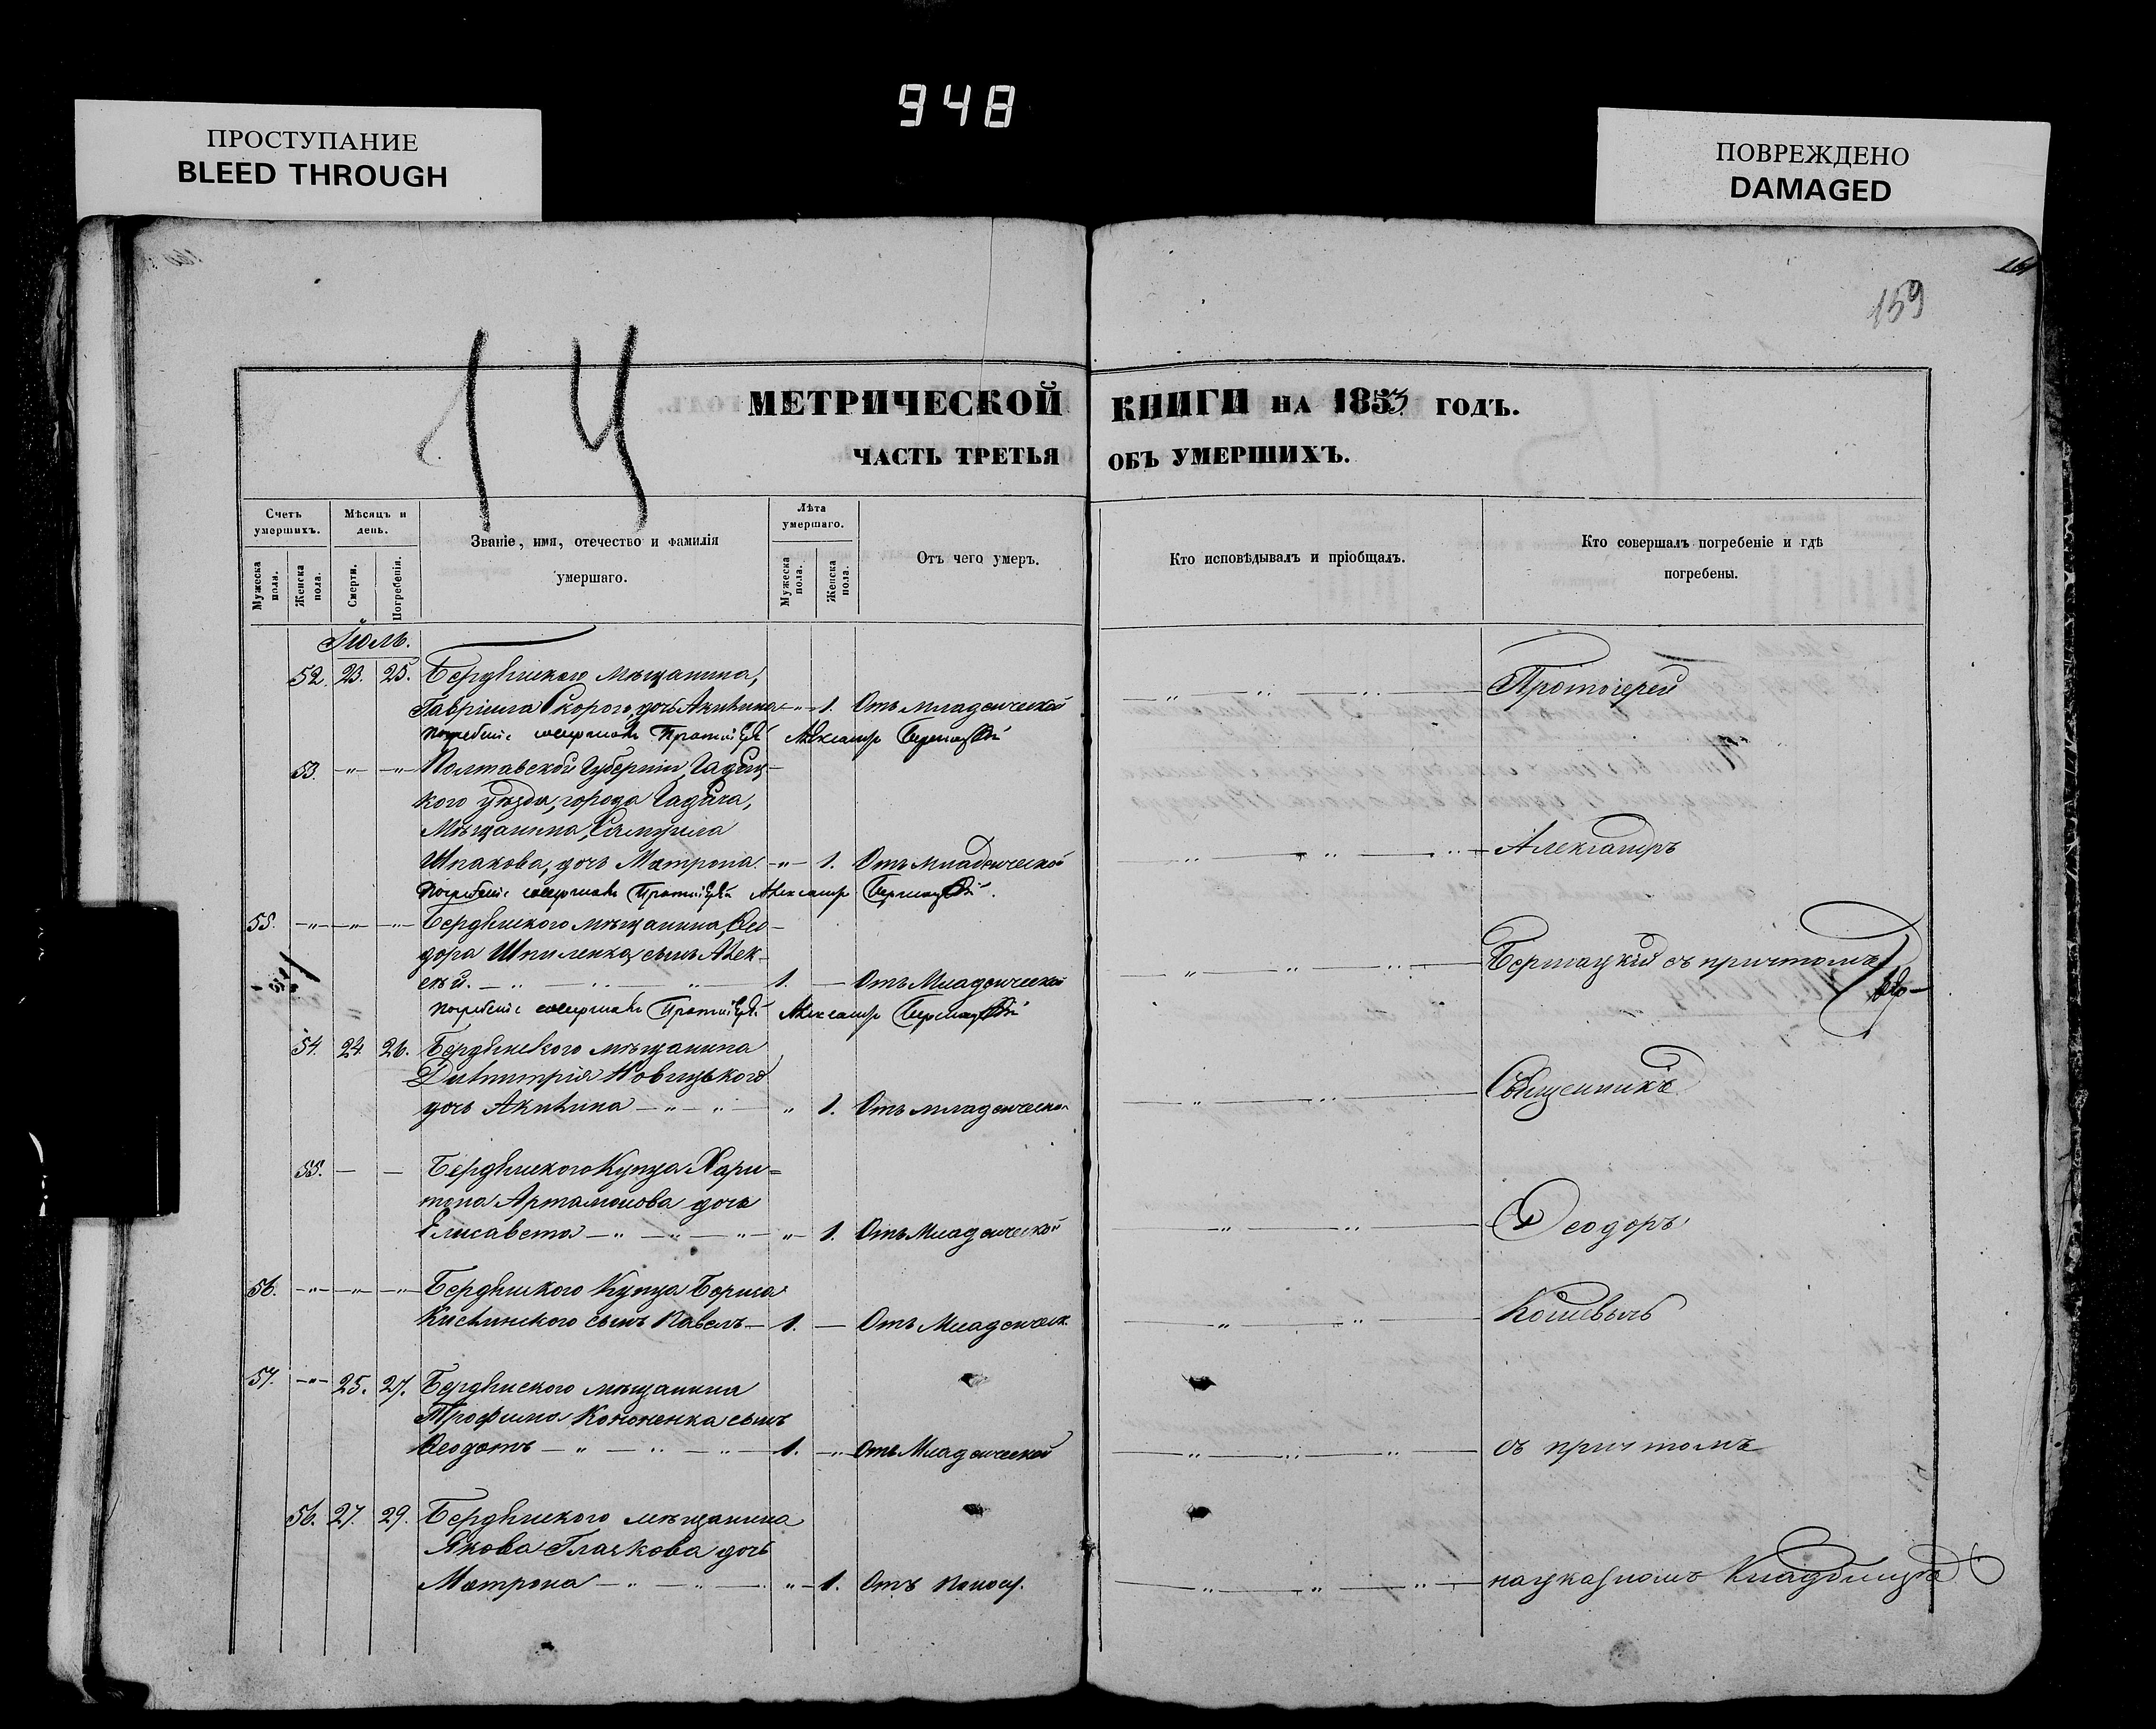 948
ПРОСТУПАНИЕ
BLEED THROUGH
ПОВРЕЖДЕНО
DAMAGED
159
14
МЕТРИЧЕСКОЙ КНИГИ НА 1853 ГОДЪ.
ЧАСТЬ ТРЕТЬЯ ОБЪ УМЕРШИХЪ.
Счетъ умершихъ.
Мужеска пола.
Женска пола.
Мѣсяцъ и день.
Смерти.
Погребенія.
Званіе, имя, отечество и фамилія
умершаго.
Лѣта умершаго.
Мужеска пола.
Женска пола.
Отъ чего умеръ.
Кто исповѣдывалъ и пріобщалъ.
Кто совершалъ погребеніе и гдѣ
погребены.
Іюль.
52. 23. 25. Бердянского мѣщанина,
Гавріила Скорого, дочь Акилина — „ — 1. Отъ Младенческой
Протоіерей
Погребеніе совершалъ Протоіерей Александръ
53. — „ — „ — Полтавской Губерніи Гадяц-
кого уѣзда, города Гадяча,
Мѣщанина, Самуила
Шпакова, дочь Матрона — „ — 1. Отъ Младенческой
Александръ
Погребеніе совершалъ Протоіерей Александръ
55. — „ — „ — „ — Бердянского мѣщанина, Ѳео-
дора Шпиленка сынъ Алек-
сѣй. — „ — 1. — Отъ Младенческой
съ причтомъ
Погребеніе совершалъ Протоіерей Александръ
54. 24. 26. Бердянского мѣщанина
Димитрія Новицького
дочь Акилина — „ — „ — „ 1. Отъ младенческой
Священникъ
55. — — Бердянского Купца Хари-
тона Артамонова дочь
Елисавета — „ — „ — „ — „ — 1. Отъ Младенческой
Ѳеодоръ
56. — „ — „ — „ — Бердянского Купца Бориса
сынъ Павелъ — 1. — Отъ Младенческ.
57. — „ — 25. 27. Бердянского мѣщанина
Трофима Кононенка сынъ
Ѳеодотъ — „ — „ — „ — 1. — „ — Отъ Младенческой
съ причтомъ
56. 27. 29. Бердянского мѣщанина
Якова дочь
Матрона — „ — „ — „ — 1. Отъ поноса.
Кладбищѣ